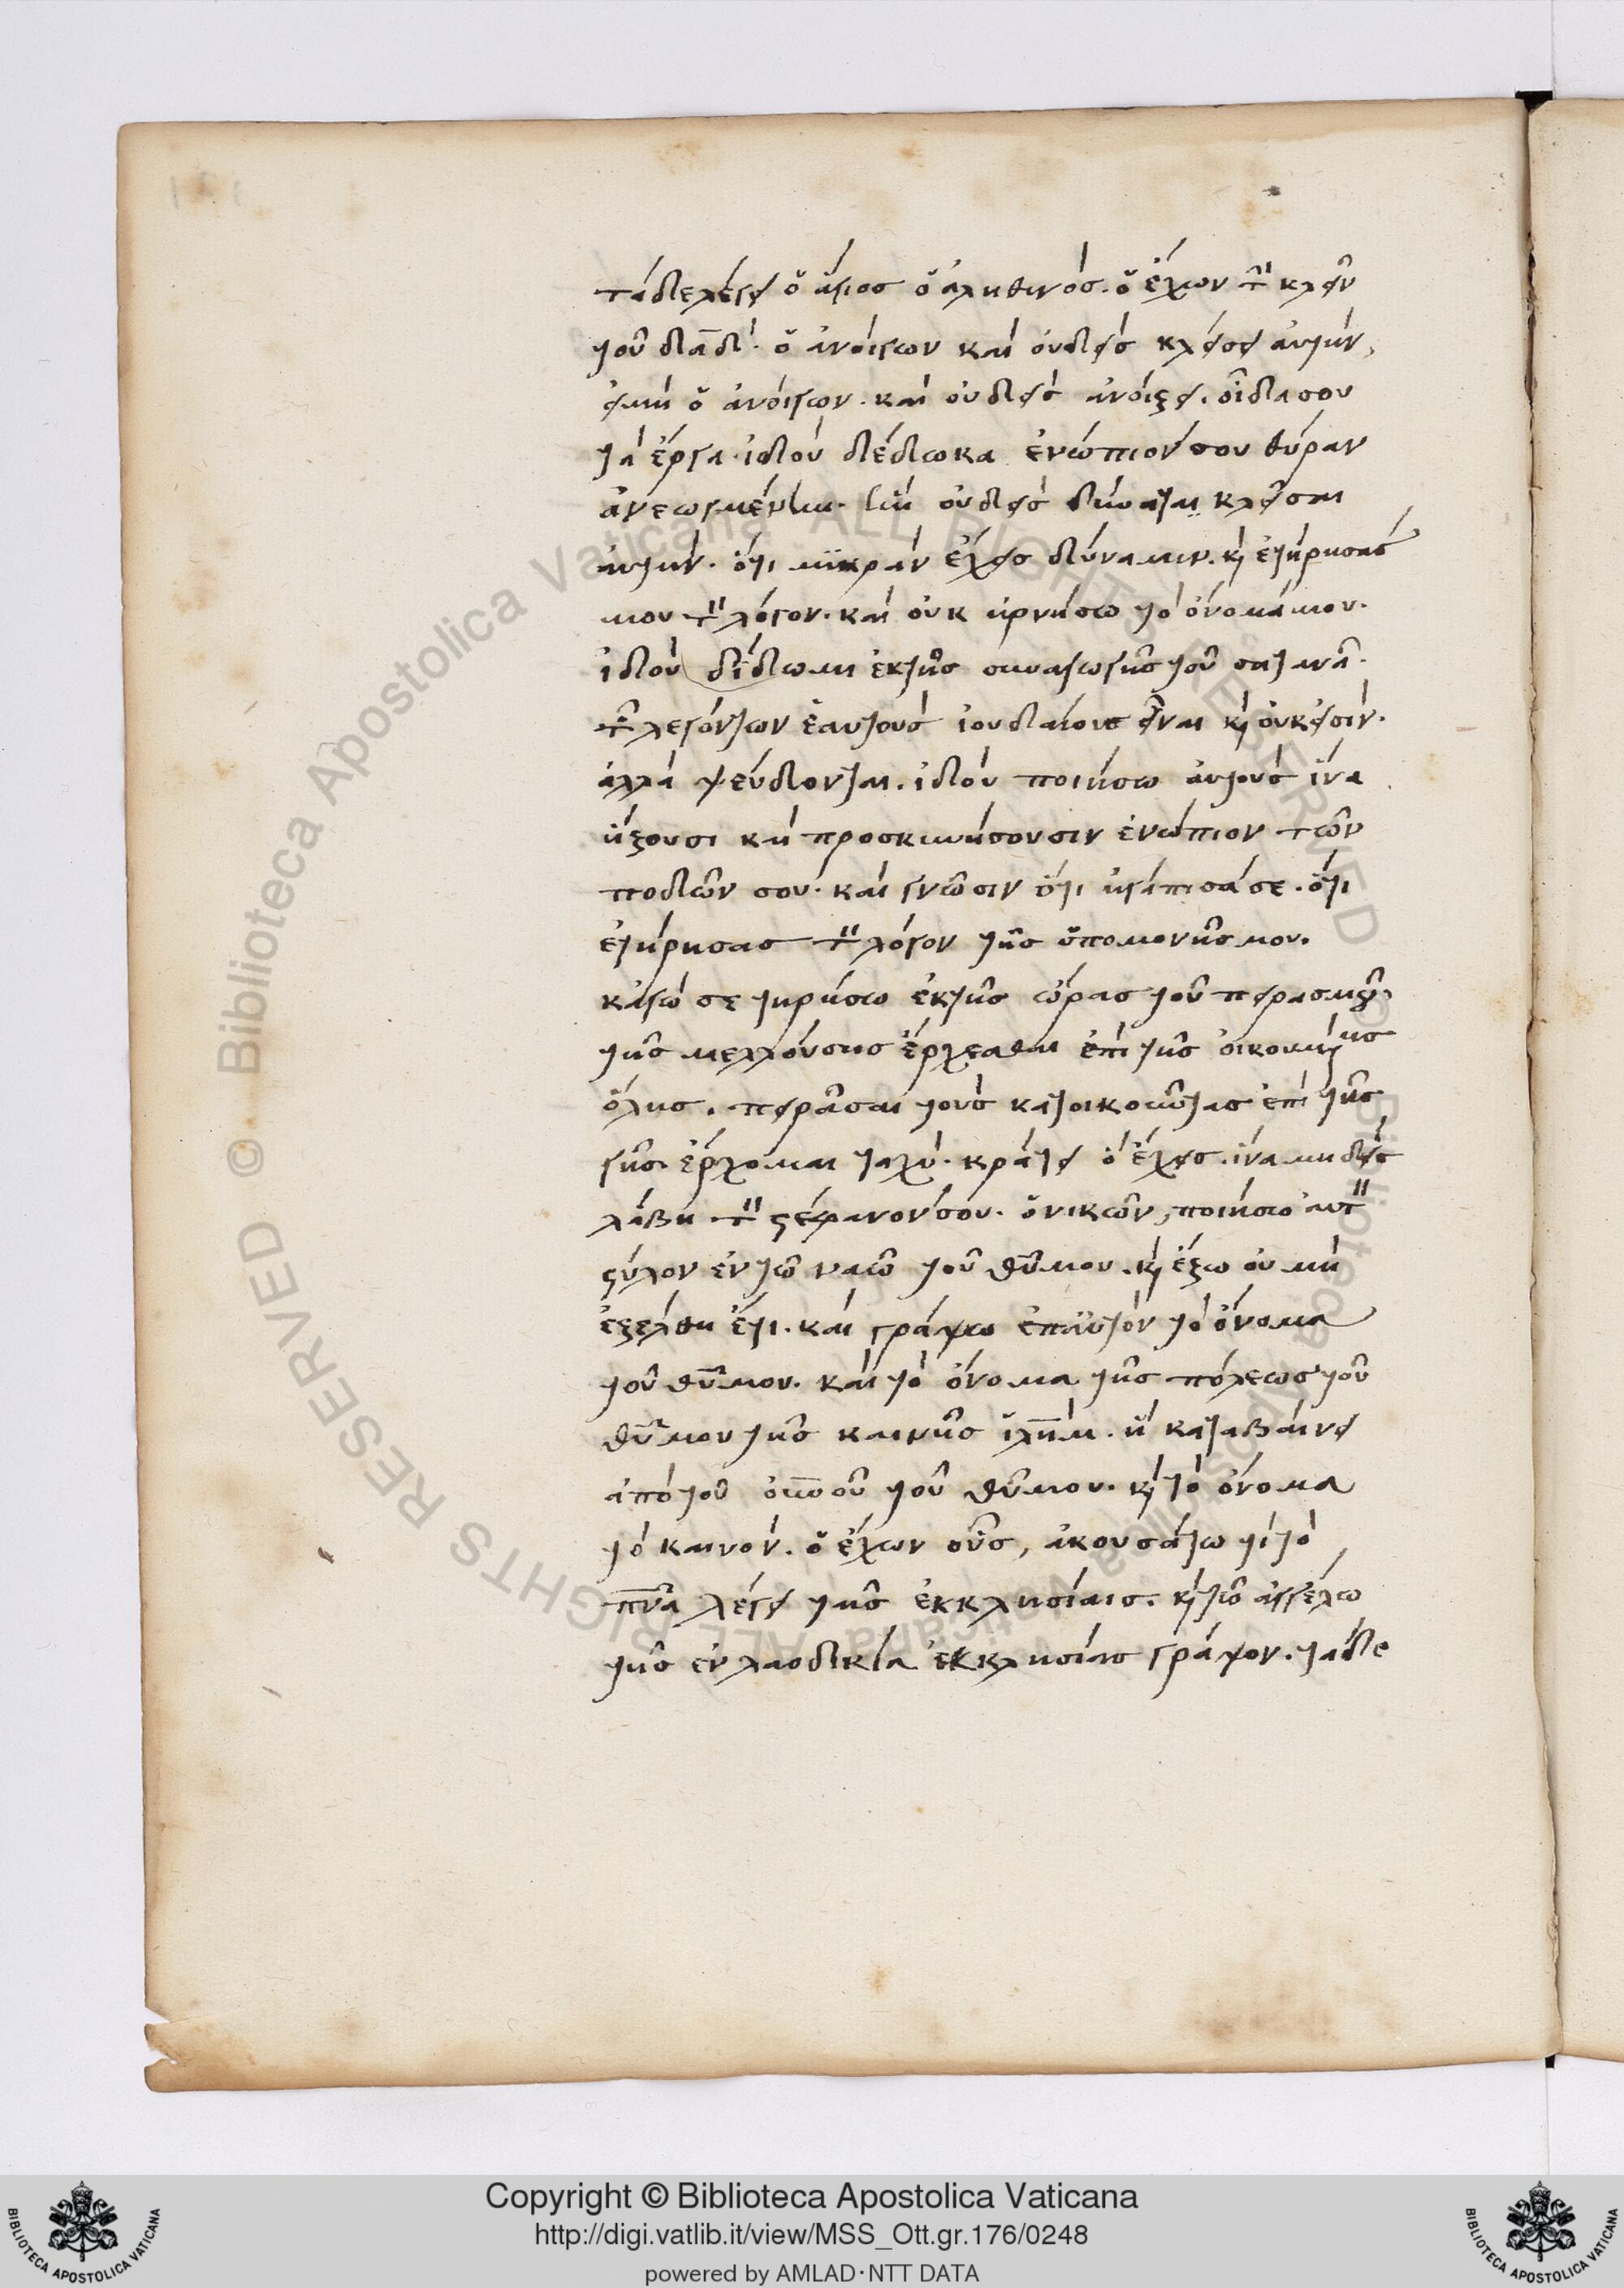 τάδε λέγει ὁ ἅγιος ὁ ἀληθινός. ὁ ἔχων τὴν κλεῖν
τοῦ δᾱδ· ὁ ἀνοίγων καὶ οὐδεὶς κλείσει αὐτήν,
εἰμὴ ὁ ἀνοίγων. καὶ οὐδεὶς ἀνοίξει. οἶδα σου
τὰ ἔργα· ἰδοὺ δέδωκα ἐνώπιόν σου θύραν
ἀνεωγμένην. ἣν οὐδεὶς δύναται κλεῖσαι
αὐτήν. ὅτι μικρὰν ἔχεις δύναμιν. κὶ ἐτήρησάς
μου τὸν λόγον. καὶ οὐκ ἠρνήσω τὸ ὄνομά μου.
ἰδοὺ δίδωμι ἐκ τῆς συναγωγῆς τοῦ σατανᾶ.
τῶν λεγόντων ἑαυτοὺς ἰουδαίους εἶναι κὶ οὐκ εἰσίν.
ἀλλὰ ψεύδονται. ἰδοὺ ποιήσω αὐτοὺς ἵνα
ἥξουσι καὶ προσκυνήσουσιν ἐνώπιον τῶν
ποδῶν σου. καὶ γνῶσιν ὅτι ἠγάπησά σε. ὅτι
ἐτήρησας τὸν λόγον τῆς ὑπομονῆς μου.
κἀγώ σε τηρήσω ἐκ τῆς ὥρας τοῦ πειρασμοῦ.
τῆς μελλούσης ἔρχεσθαι ἐπὶ τῆς οἰκουμένης
ὅλης. πειρᾶσαι τοὺς κατοικοῦντας ἐπὶ τῆς
γῆς. ἔρχομαι ταχύ. κράτει ὃ ἔχεις. ἵνα μηδεὶς
λάβῃ τὸν στέφανόν σου. ὁ νικῶν, ποιήσω αὐτὸν
στύλον ἐν τῷ ναῷ τοῦ θῡ μου. κὶ ἔξω οὐ μὴ
ἐξέλθῃ ἔτι. καὶ γράψω ἐπ' αὐτὸν τὸ ὄνομα
τοῦ θῡ μου. καὶ τὸ ὄνομα τῆς πόλεως τοῦ
θῡ μου τῆς καινῆς ἰλη̄μ. ἣ καταβαίνει
ἀπὸ τοῦ οὐνοῦ τοῦ θῡ μου. κὶ τὸ ὄνομα
τὸ καινόν. ὁ ἔχων οὖς, ἀκουσάτω τί τὸ
πνᾱ λέγει ταῖς ἐκκλησίαις. κὶ τῷ ἀγγέλω
τῆς ἐν λαοδικία ἐκκλησίας γράψον. τάδε
Copyright © Biblioteca Apostolica Vaticana
http://digi.vatlib.it/view/MSS_Ott.gr.176/0248
powered by AMLAD·NTT DATA